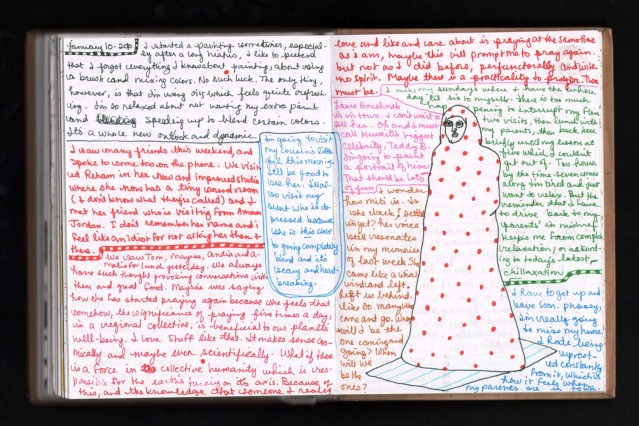 January 10. 200
I started a painting sometimes, especial-
ly after a long hiatus, I like to pretend
that I forgot everything I know about painting, about using
a brush and mixing colors. No such luck. The only thing,
however, is that I'm using oils, which feels quite refresh-
ing. I'm so relaxed about not wasting my extra paint
and speeding up to blend certain colors.
It's a whole new outlook and dynamic.
I saw many friends this weekend, and
spoke to some too, on the phone. We visit
ed Reham in her new and improved studio
where she now has a tiny sound room
(I don't know what they're called) and I
met her friend who is visiting from Amman
Jordan. I don't remember her name and I
feel like an idiot for not asking her then &
there.
We saw Tom, Maysa, and
for lunch yesterday. We always
have such thought provoking conversations with
them and great food. Maysa was saying
how she has started praying again because she feels that
somehow, the significance of praying five times a day,
in a regional collective, is beneficial to our planet's
well-being. I love stuff like that. It makes sense cos-
mically and maybe even scientifically. What if there
is a force in the collective humanity which is res-
ponsible for the earth's turning on its axis. Because of
this, and the knowledge that someone I really
I'm going to visit
my cousin's little
girl this morning.
It'll be good to
see her. I'll al-
so visit my
aunt who is de-
pressed because
she is this close
to going completely
blind and it's
scary and heart-
breaking.
love and like and care about is praying at the same time
as I am, maybe this will prompt me to pray again.
but not as I did before, perfunctorily and with
no spirit. Maybe there is a practicality to prayer. There
must be.
Boushnak
is in town. I can't wait to
see her. Oh and I must
call Kuwait's biggest
celebrity, Teddy B.
I'm going to paint
a portrait of hers.
That should be lots
of fun.
I wonder
how miti is. Is
she dead? Better
yet? her voice
still resonates
in my mind as
of last week. She
came like a whirl
wind and left,
left us behind.
like so many who
come and go. When
will I be the
one coming and
going? When
will we
be the
ones?
I miss my Sundays where I have the whole
day to myself. There is too much
happening to interrupt my flow
two visits, then lunch with
my parents, then back here
briefly until my lesson at
five which I couldn't
get out of. Two hours
by the time seven comes
along I'm tired and just
want to relax. But the
reminder that I have
to drive back to my
parents' in
keeps me from complete
relaxation, or accord-
ing to today's latest,
chillaxation.
I have to get up and
leave soon. phooey,
I'm really going
to miss my home.
I hate being
uproot-
ed constantly
from it, which is
how it feels when
my parents are in town.